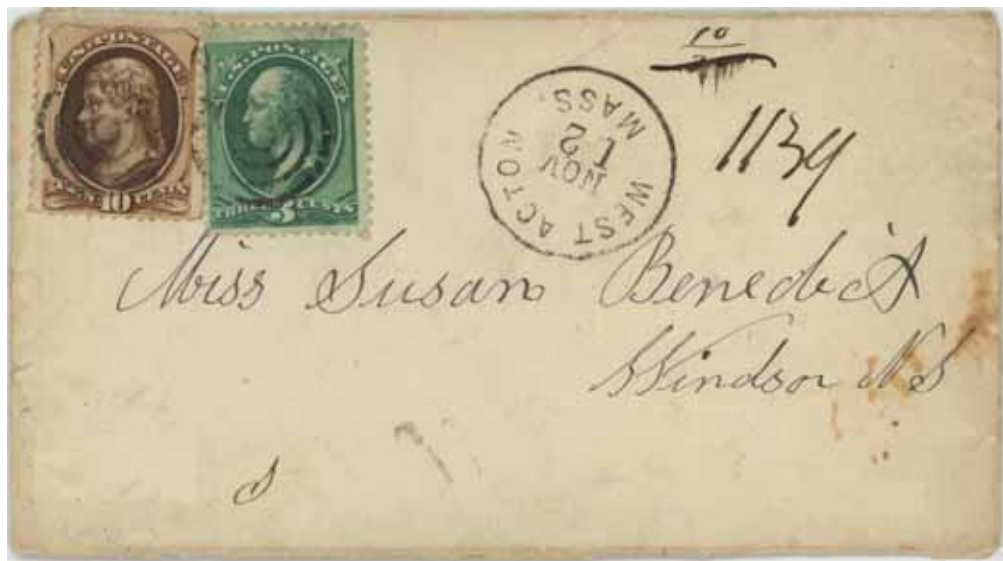 U.S. POSTAGE
TEN 10 CENTS
U.S. POSTAGE
THREE 3 CENTS
WEST ACTON
NOV
12
MASS.
10
1139
Miss Susan Benedict
Windsor N S